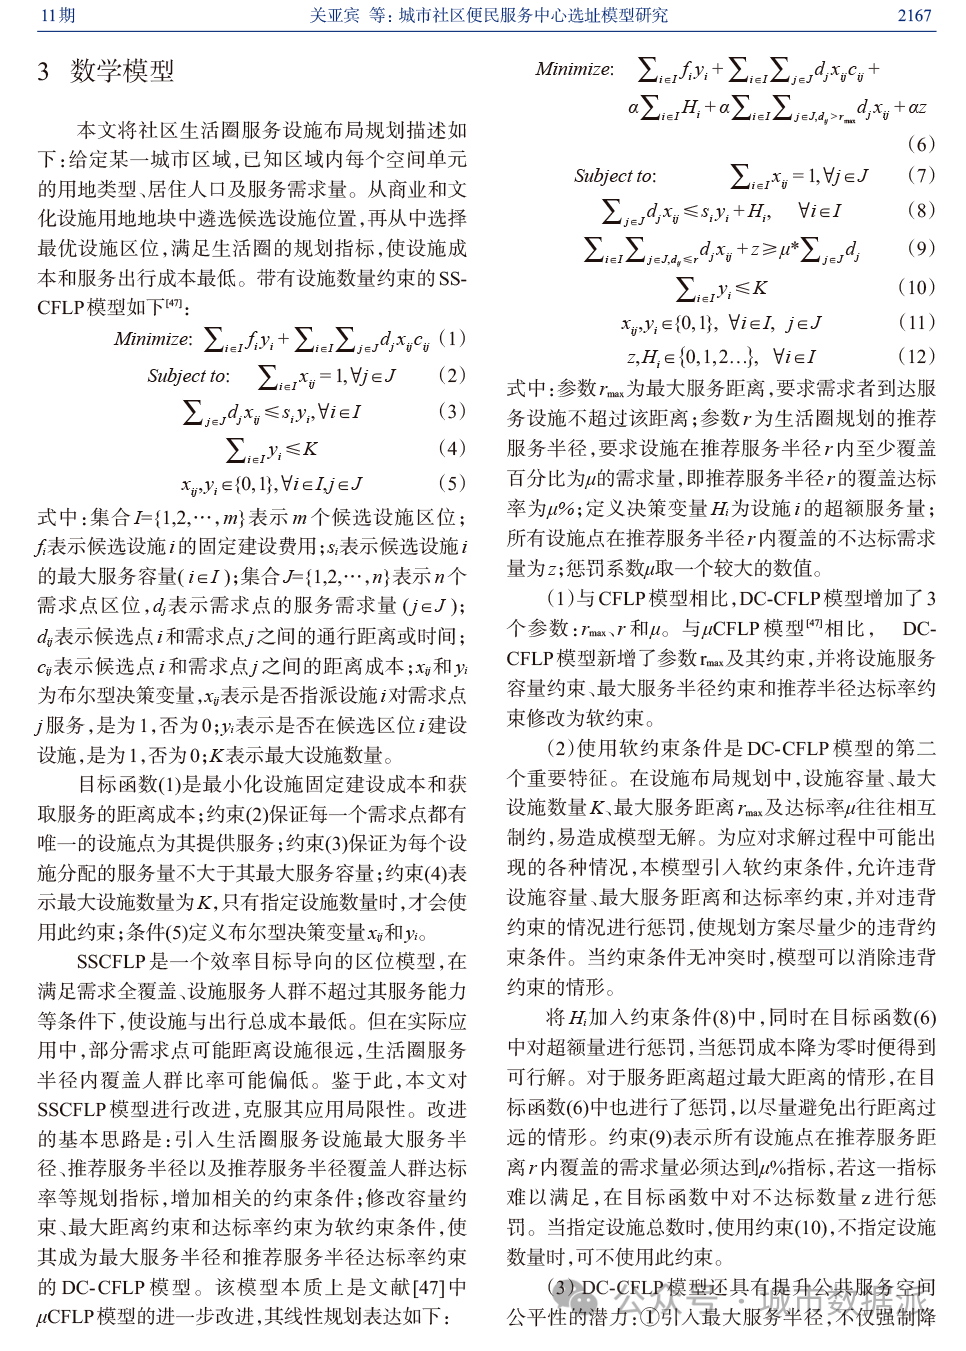 11期
关亚宾 等:城市社区便民服务中心选址模型研究
2167
3 数学模型
本文将社区生活圈服务设施布局规划描述如
下:给定某一城市区域,已知区域内每个空间单元
的用地类型、居住人口及服务需求量。从商业和文
化设施用地地块中遴选候选设施位置,再从中选择
最优设施区位,满足生活圈的规划指标,使设施成
本和服务出行成本最低。带有设施数量约束的SS-
CFLP模型如下[47]:
Minimize: ∑i∈I fiyi + ∑i∈I∑j∈J djxijcij (1)
Subject to: ∑i∈I xij = 1,∀j∈J (2)
∑j∈J djxij ≤ siyi,∀i∈I (3)
∑i∈I yi ≤ K (4)
xij,yi∈{0,1},∀i∈I,j∈J (5)
式中:集合I={1,2,⋯,m}表示m个候选设施区位;
fi表示候选设施i的固定建设费用;si表示候选设施i
的最大服务容量( i∈I );集合J={1,2,⋯,n}表示n个
需求点区位,dj表示需求点的服务需求量 ( j∈J );
dij表示候选点i和需求点j之间的通行距离或时间;
cij表示候选点i和需求点j之间的距离成本;xij和yi
为布尔型决策变量,xij表示是否指派设施i对需求点
j服务,是为1,否为0;yi表示是否在候选区位i建设
设施,是为1,否为0;K表示最大设施数量。
目标函数(1)是最小化设施固定建设成本和获
取服务的距离成本;约束(2)保证每一个需求点都有
唯一的设施点为其提供服务;约束(3)保证为每个设
施分配的服务量不大于其最大服务容量;约束(4)表
示最大设施数量为K,只有指定设施数量时,才会使
用此约束;条件(5)定义布尔型决策变量xij和yi。
SSCFLP是一个效率目标导向的区位模型,在
满足需求全覆盖、设施服务人群不超过其服务能力
等条件下,使设施与出行总成本最低。但在实际应
用中,部分需求点可能距离设施很远,生活圈服务
半径内覆盖人群比率可能偏低。鉴于此,本文对
SSCFLP模型进行改进,克服其应用局限性。改进
的基本思路是:引入生活圈服务设施最大服务半
径、推荐服务半径以及推荐服务半径覆盖人群达标
率等规划指标,增加相关的约束条件;修改容量约
束、最大距离约束和达标率约束为软约束条件,使
其成为最大服务半径和推荐服务半径达标率约束
的DC-CFLP模型。该模型本质上是文献[47]中
μCFLP模型的进一步改进,其线性规划表达如下:
Minimize: ∑i∈I fiyi + ∑i∈I∑j∈J djxijcij +
α∑i∈I Hi + α∑i∈I∑j∈J,dij>rmax djxij + αz
(6)
Subject to: ∑i∈I xij = 1,∀j∈J (7)
∑j∈J djxij ≤ siyi + Hi, ∀i∈I (8)
∑i∈I∑j∈J,dij≤r djxij + z ≥ μ*∑j∈J dj (9)
∑i∈I yi ≤ K (10)
xij,yi∈{0,1}, ∀i∈I, j∈J (11)
z,Hi∈{0,1,2…}, ∀i∈I (12)
式中:参数rmax为最大服务距离,要求需求者到达服
务设施不超过该距离;参数r为生活圈规划的推荐
服务半径,要求设施在推荐服务半径r内至少覆盖
百分比为μ的需求量,即推荐服务半径r的覆盖达标
率为μ%;定义决策变量Hi为设施i的超额服务量;
所有设施点在推荐服务半径r内覆盖的不达标需求
量为z;惩罚系数μ取一个较大的数值。
(1)与CFLP模型相比,DC-CFLP模型增加了3
个参数:rmax、r和μ。与μCFLP模型[47]相比, DC-
CFLP模型新增了参数rmax及其约束,并将设施服务
容量约束、最大服务半径约束和推荐半径达标率约
束修改为软约束。
(2)使用软约束条件是DC-CFLP模型的第二
个重要特征。在设施布局规划中,设施容量、最大
设施数量K、最大服务距离rmax及达标率μ往往相互
制约,易造成模型无解。为应对求解过程中可能出
现的各种情况,本模型引入软约束条件,允许违背
设施容量、最大服务距离和达标率约束,并对违背
约束的情况进行惩罚,使规划方案尽量少的违背约
束条件。当约束条件无冲突时,模型可以消除违背
约束的情形。
将Hi加入约束条件(8)中,同时在目标函数(6)
中对超额量进行惩罚,当惩罚成本降为零时便得到
可行解。对于服务距离超过最大距离的情形,在目
标函数(6)中也进行了惩罚,以尽量避免出行距离过
远的情形。约束(9)表示所有设施点在推荐服务距
离r内覆盖的需求量必须达到μ%指标,若这一指标
难以满足,在目标函数中对不达标数量z进行惩
罚。当指定设施总数时,使用约束(10),不指定设施
数量时,可不使用此约束。
(3)DC-CFLP模型还具有提升公共服务空间
公平性的潜力:①引入最大服务半径,不仅强制降
公众号 · 城市数据派